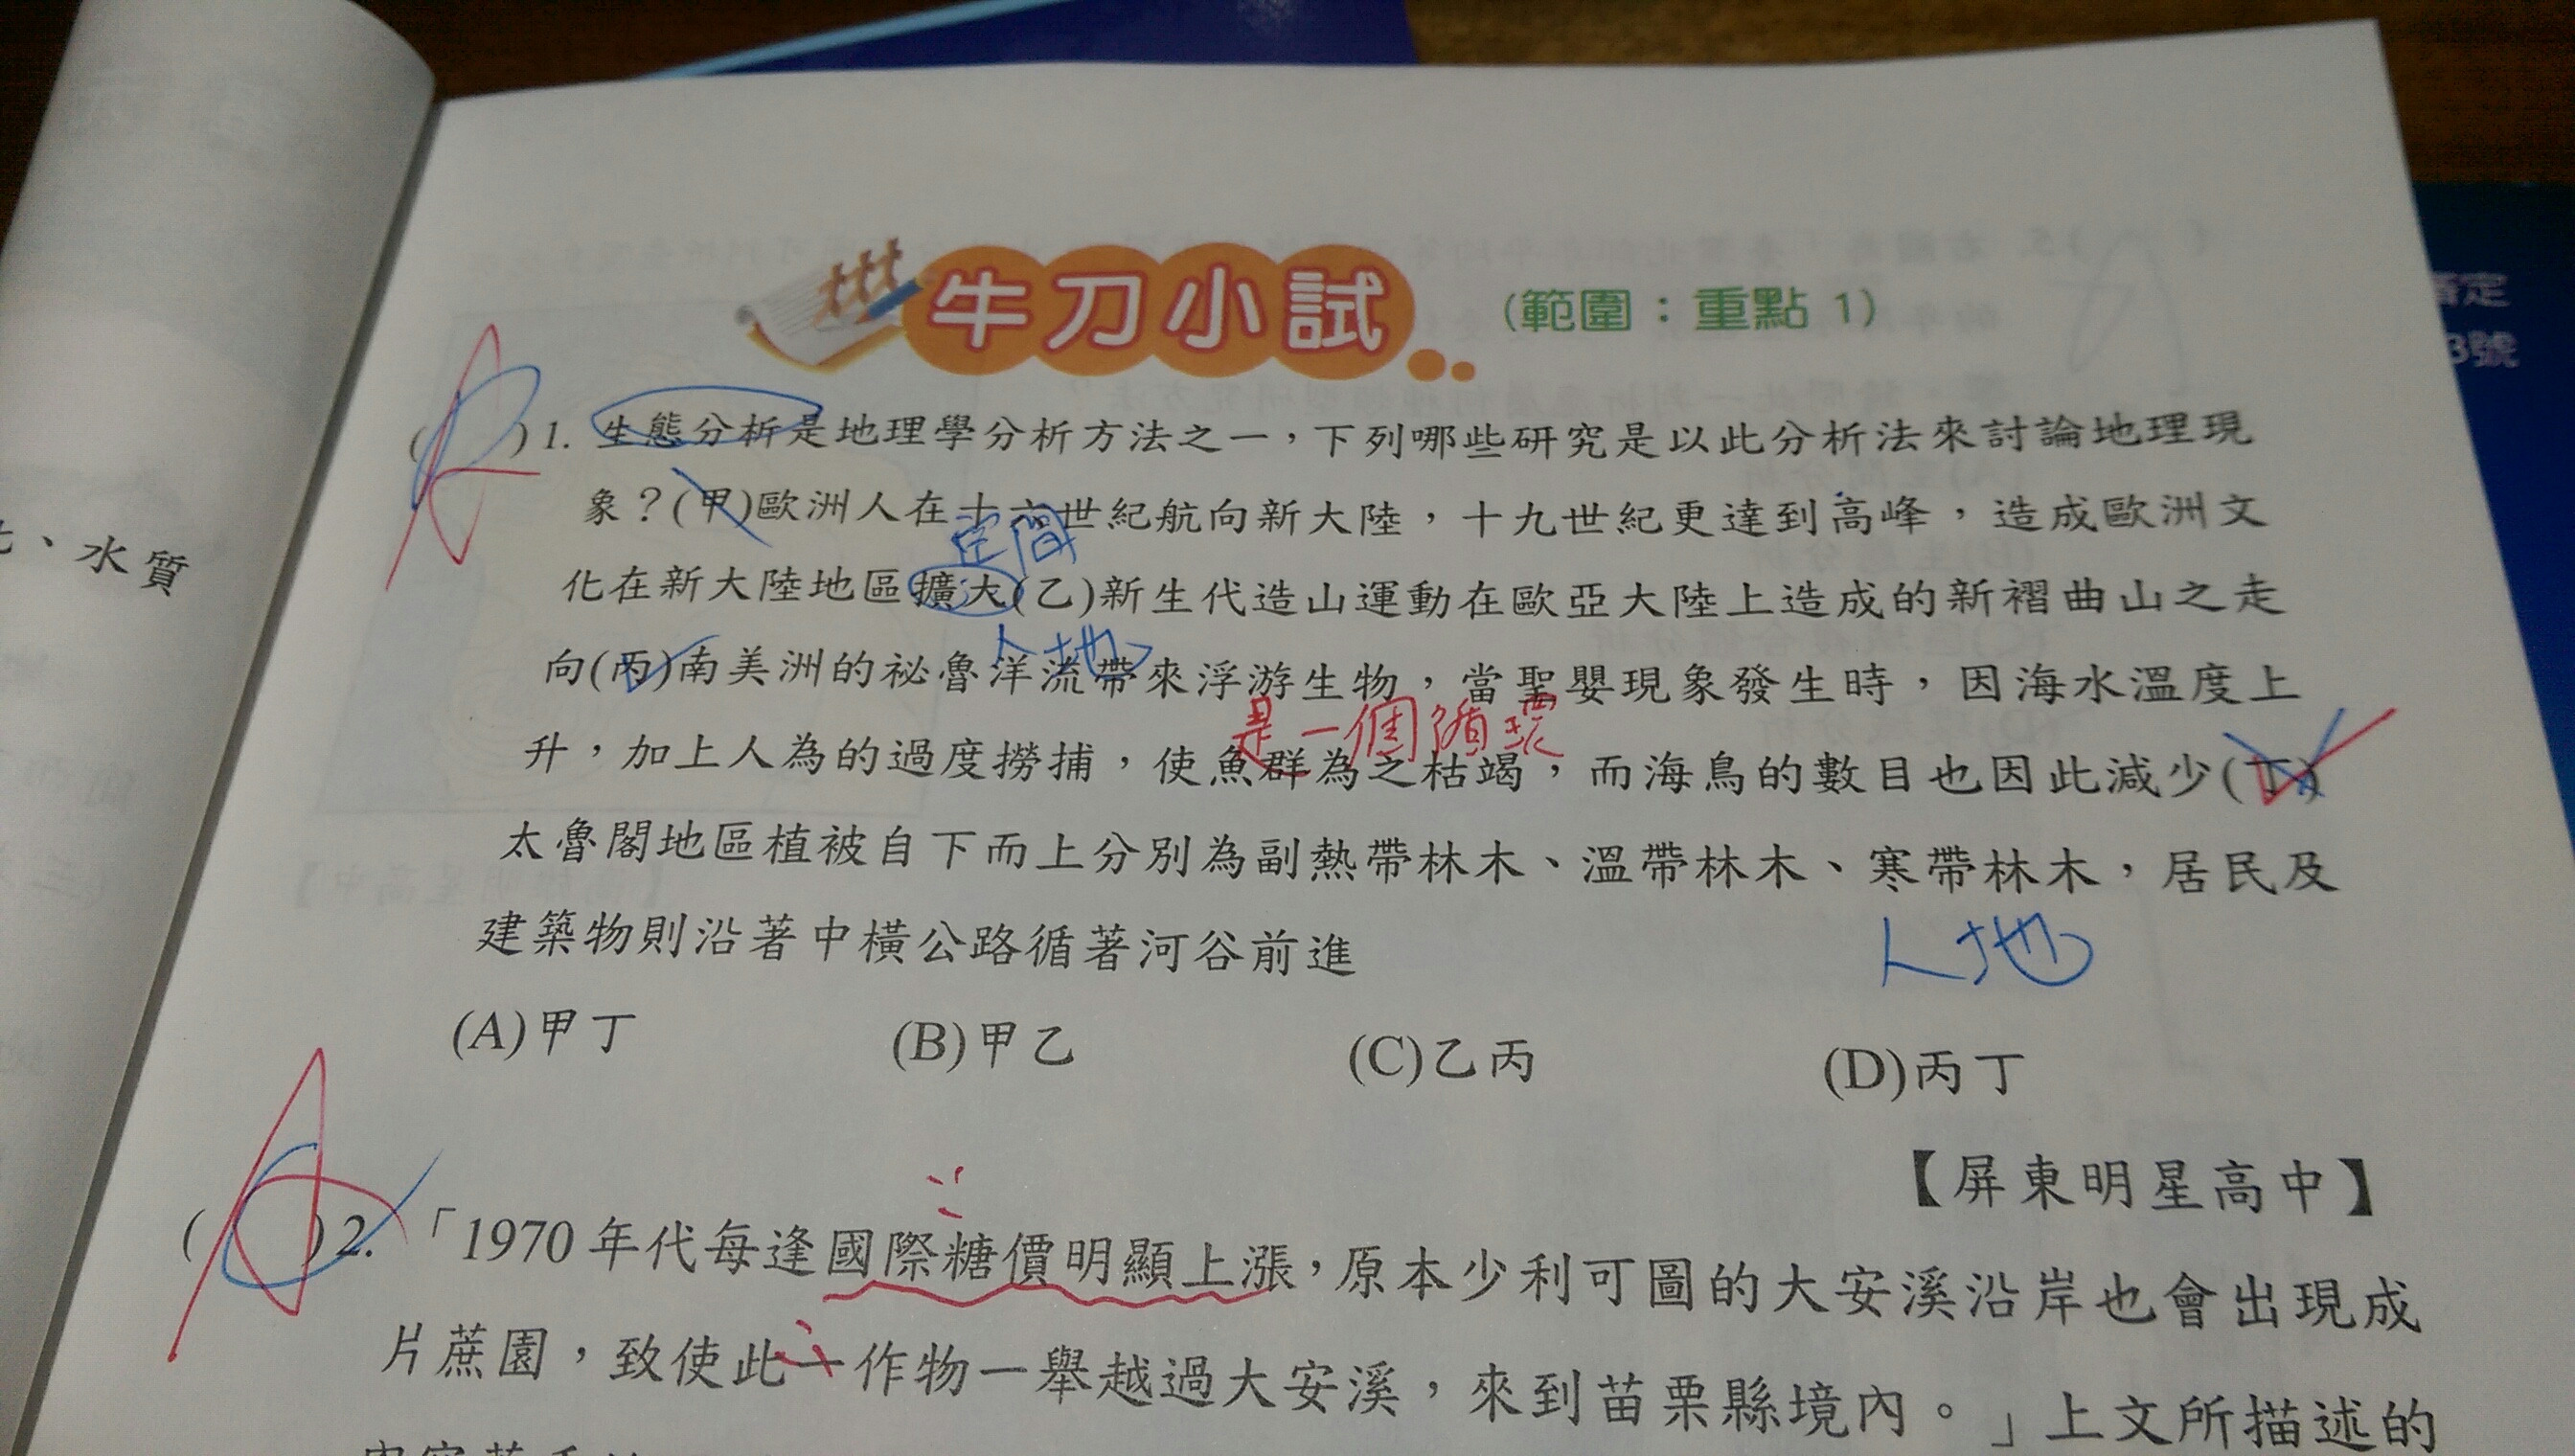 牛刀小試 (範圍：重點 1)
( )1. 生態分析是地理學分析方法之一，下列哪些研究是以此分析法來討論地理現
象？(甲)歐洲人在十六世紀航向新大陸，十九世紀更達到高峰，造成歐洲文
空間
化在新大陸地區擴大(乙)新生代造山運動在歐亞大陸上造成的新褶曲山之走
人地
向(丙)南美洲的祕魯洋流帶來浮游生物，當聖嬰現象發生時，因海水溫度上
是一個循環
升，加上人為的過度撈捕，使魚群為之枯竭，而海鳥的數目也因此減少(丁)
太魯閣地區植被自下而上分別為副熱帶林木、溫帶林木、寒帶林木，居民及
建築物則沿著中橫公路循著河谷前進
人地
(A)甲丁 (B)甲乙 (C)乙丙 (D)丙丁
【屏東明星高中】
( )2. 「1970年代每逢國際糖價明顯上漲，原本少利可圖的大安溪沿岸也會出現成
片蔗園，致使此一作物一舉越過大安溪，來到苗栗縣境內。」上文所描述的
、水質
定
3號